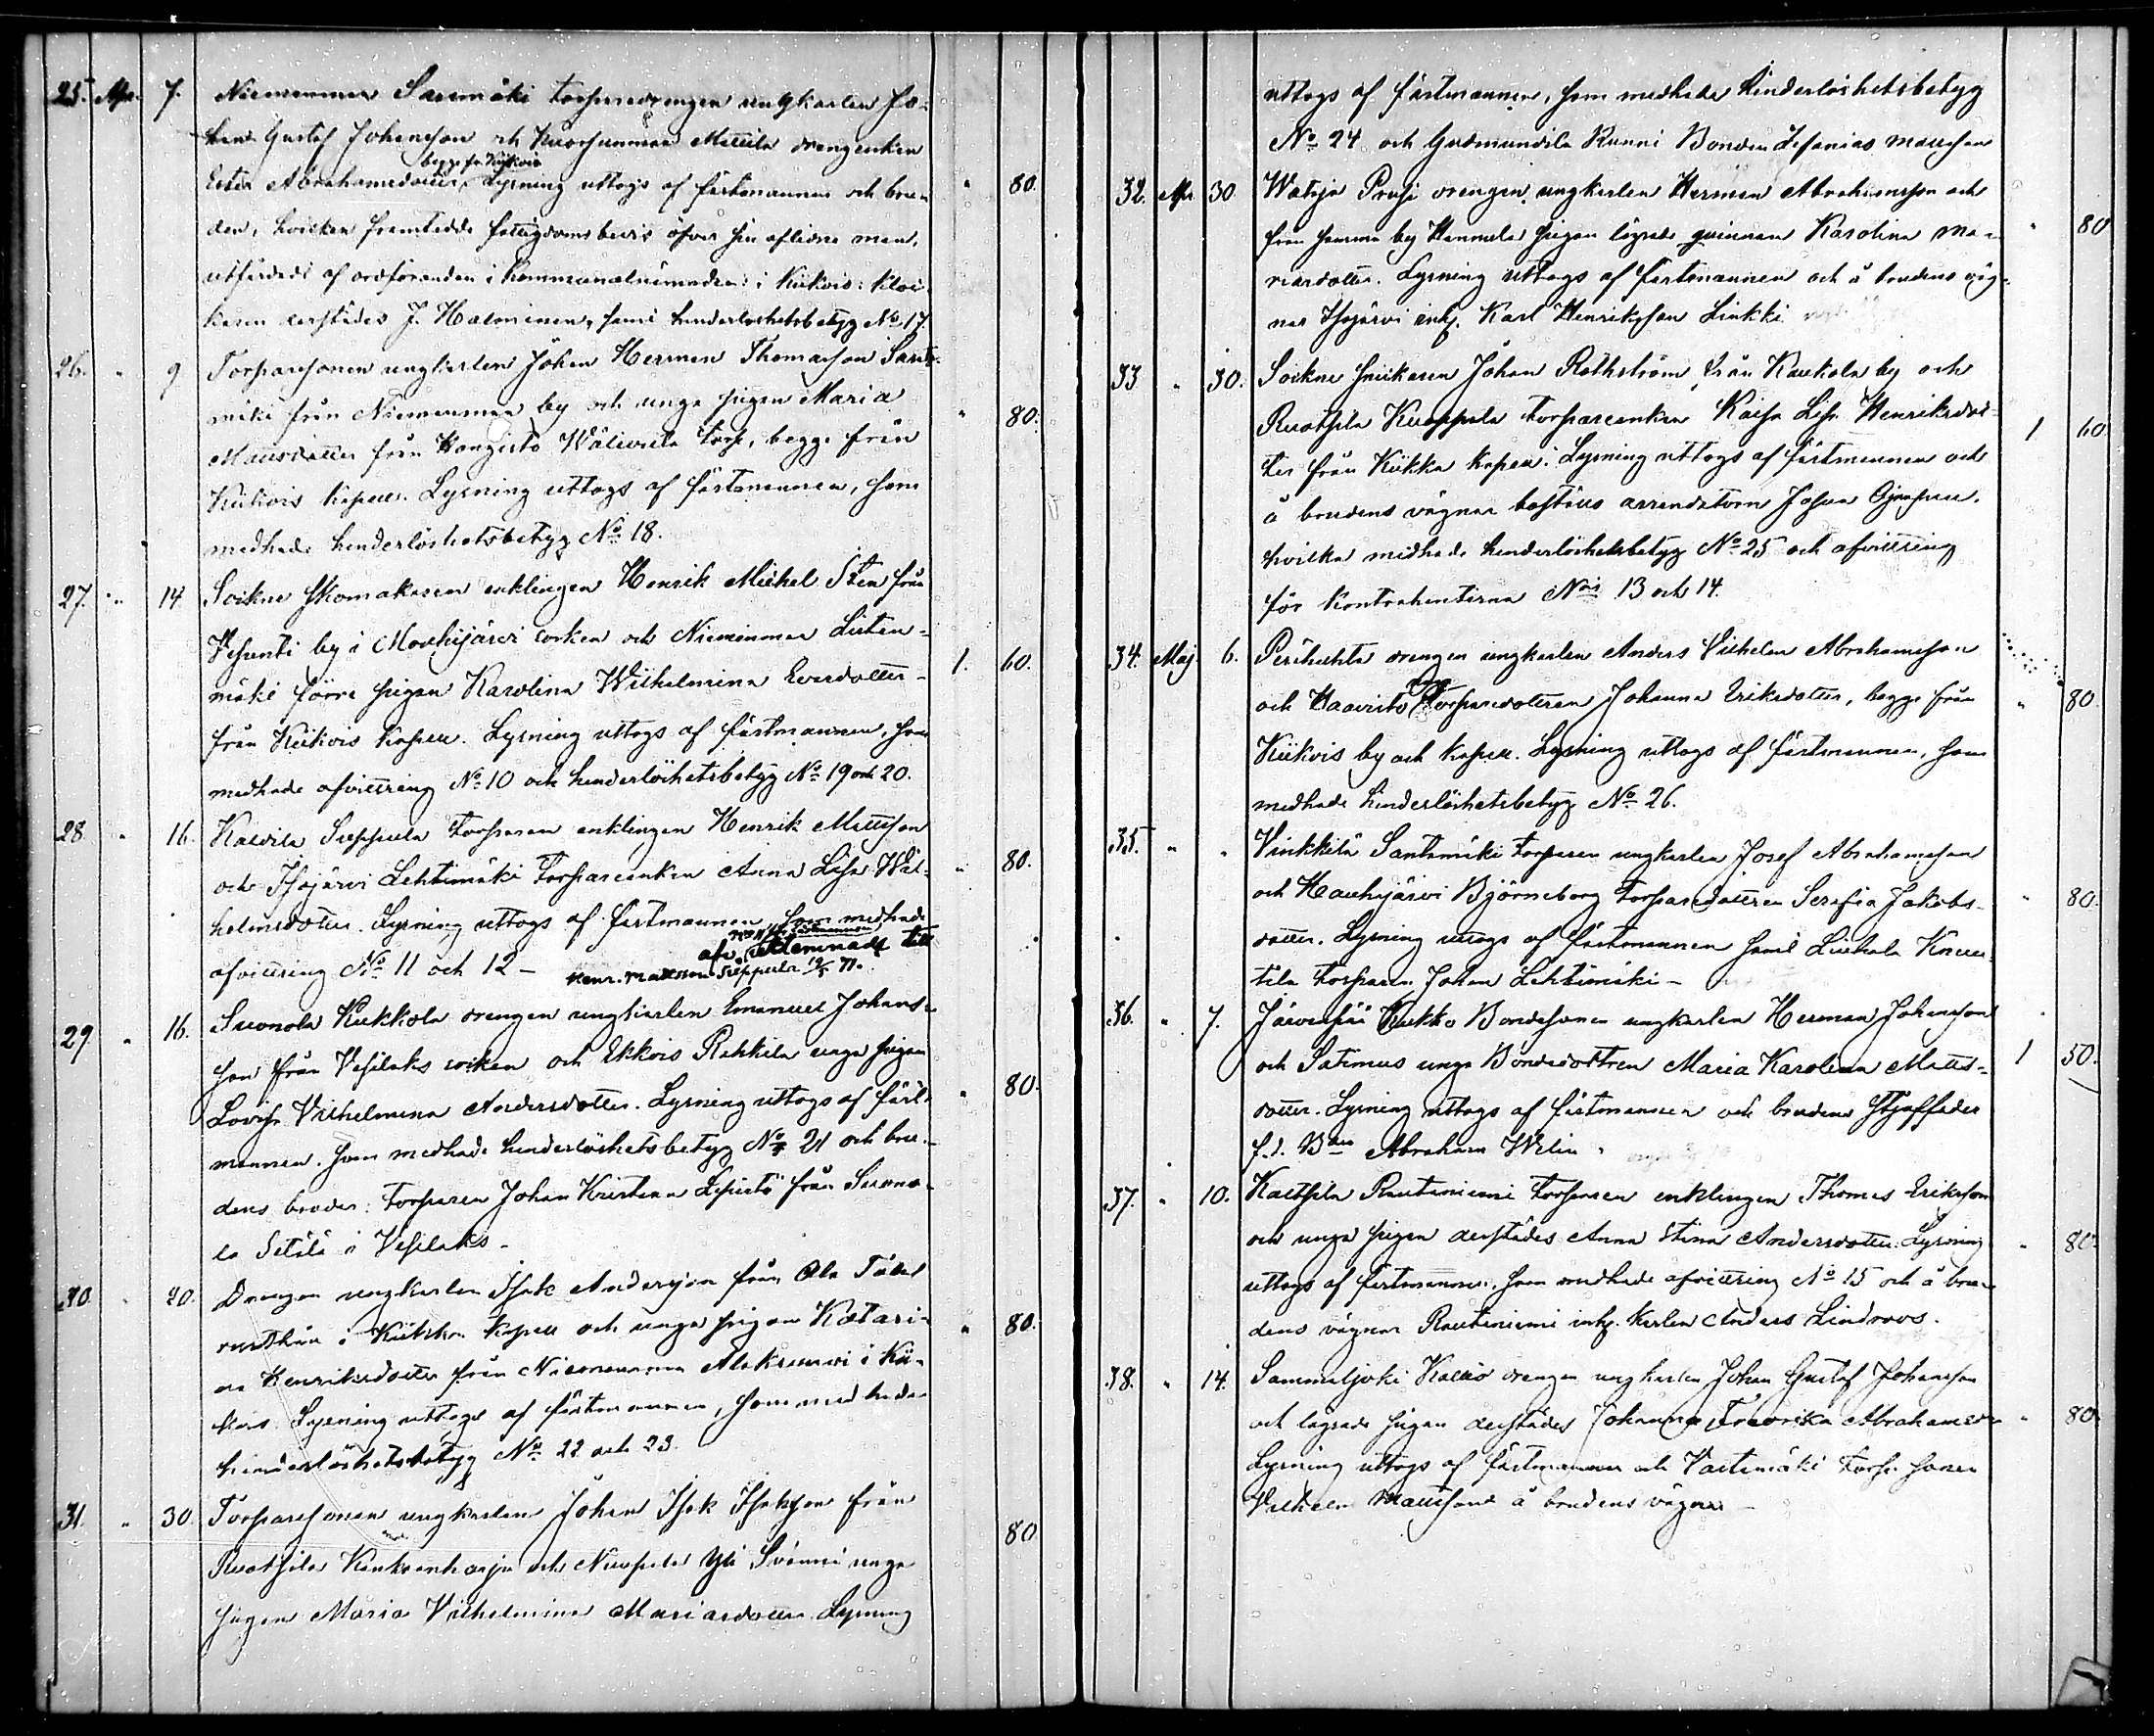 25. Apr. 7. Niemenmaa Saarimäki torparedrengen ungkarlen Jo-
han Gustaf Johansson och Kuorsunmaa Mattila drengenkan
begge fr. Kiikois
Ester Abrahamsdotter, Lysning uttogs af fästmannen och bru- " 80.
den, hvilken framtedde fattigdoms bevis öfver sin aflidne man,
utfärdadt af ordföranden i kommunalnämnden i Kiikois: kloc-
karen derstädes J. Halminen, samt hinderlöshetsbetyg No 17.
26. " 9 Torparesonen ungkarlen Johan Herman Thomasson Santa-
mäki från Niemenmaa by och unga pigan Maria " 80.
Mattsdotter från Kangisto Wälisuila torp, begge från
Kiikois kapell. Lysning uttogs af fästmannen, som
medhade hinderlöshetsbetyg No 18.
27. " 14 Sockne skomakaren enklingen Henrik Michel Sten från
Vesunti by i Mouhijärvi socken och Niemenmaa Lieten-
mäki förre pigan Karolina Wilhelmina Eversdotter 1. 60.
från Kiikois kapell. Lysning uttogs af fästmannen, som
medhade afvittring No 10 och hinderlöshetsbetyg No 19 och 20.
28. " 16. Kalvila Sieppala torparen enklingen Henrik Mattsson
och Isojärvi Lehtimäki torpareenkan Anna Lisa Wil- " 80.
helmsdotter. Lysning uttogs af fästmannen, som medhade
afvittring No 11 och 12 –
No 11 för fästmannen
afv. utlemnadt till
Henr. Mattsson Sieppala 12/5 71.
29. " 16. Suonola Kukkola drengen ungkarlen Emanuel Johans-
son från Vesilaks socken och Ekkois Rahkila unga pigan
Lovisa Vilhelmina Andersdotter. Lysning uttogs af fäst- " 80.
mannen, som medhade hinderlöshetsbetyg No 21 och bru-
dens broder: torparen Johan Kristian Lepistö från Suono-
la Setälä i Vesilaks –
30. " 20. Drengen ungkarlen Isak Andersson från Ala Tatel
rusthåll i Kiikka kapell och unga pigan Katari- " 80.
na Henriksdotter från Niemenmaa i Kii-
kois. Lysning uttogs af fästmannen, som medhade
hinderlöshetsbetyg No 22 och 23.
31. " 30. Torparesonen ungkarlen Johan Isak Isaksson från 80.
Ruotsila Kankaanharju och Niupala Yli Svänni unga
pigan Maria Vilhelmina Mariasdotter Lysning
uttogs af fästmannen, som medhade hinderlöshetsbetyg
No 24 och Gudmundila Runni Bonden Jesaias Mattsson
32. Apr 30 Watsja Prusi drengen ungkarlen Herman Abrahamsson och
från samma by Hannula pigan lägrade qvinnan Karolina Ma- " 80
riasdotter. Lysning uttogs af fästmannen och å brudens väg-
nar Isojärvi inh. Karl Henriksson Linkki
33 " 30. Sockne snickaren Johan Rothström från Kaukola by och
Ruotsila Kuoppala torpareenkan Kaisa Lisa Henriksdot- 1 60
ter från Kiikka kapell. Lysning uttogs af fästmannen och
å brudens vägnar arrendatorn Josua
hvilka medhade hinderlöshetsbetyg No 25 och afvittring
för kontrahenterna No 13 och 14.
34. Maj 6. Perähuhta drengen ungkarlen Anders Vilhelm Abrahamsson
och Haavisto torparedottren Johanna Eriksdotter, begge från " 80
Kiikois by och kapell. Lysning uttogs af fästmannen, som
medhade hinderlöshetsbetyg No 26.
35. " " Vinkkilä Santamäki torparen ungkarlen Josef Abrahamsson
och Kauhijärvi Björneborg torparedottren Serafia Jakobs- " 80.
dotter. Lysning uttogs af fästmannen samt Liuhala Knuu-
tila torparen Johan Lehtimäki –
36. " 7. Järvenpää Kukko Bondesonen ungkarlen Herman Johansson
och Satimus unga Bondedottren Maria Karolina Matts- 1 50.
dotter. Lysning uttogs af fästmannen och brudens styffader
f.d. Bden Abraham Welin.
37. " 10. Kaltsila Rautaniemi torparen enklingen Thomas Eriksson
och unga pigan derstädes Anna Stina Andersdotter. Lysning " 80.
uttogs af fästmannen, som medhade afvittring No 15 och å bru-
dens vägnar Rautaniemi inh. karlen Anders Lindroos.
38. " 14. Sammaljoki Kallio drengen ungkarlen Johan Gustaf Johansson
och lägrade pigan derstädes Johanna Fredrika Abrahamsdr " 80
Lysning uttogs af fästmannen och Vartemäki torp. sonen
Vilhelm Mattsson å brudens vägnar –